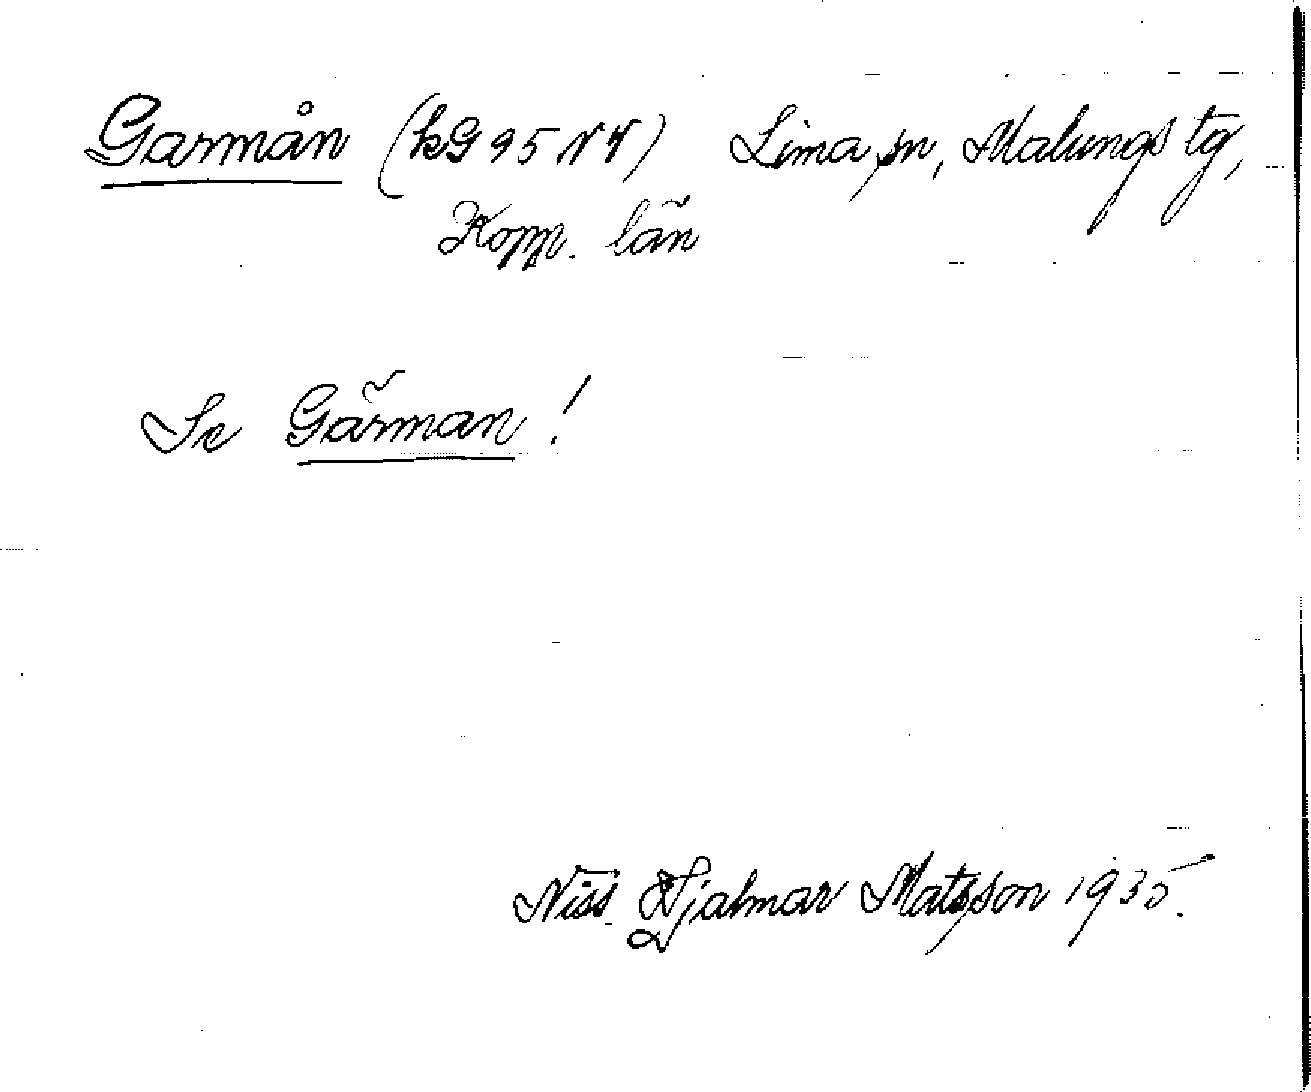 Garmån (kG 95 NV) Lima sn, Malungs tg,
Kopp. län
Se Gärman!
Niss Hjalmar Matsson 1935.